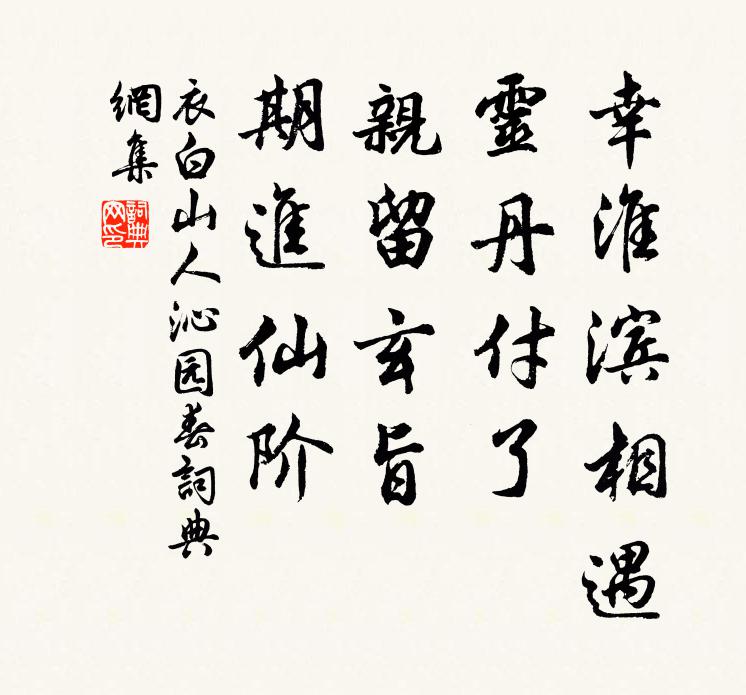 幸淮滨相遇
靈丹付了
親留玄旨
期進仙阶
衣白山人沁园春詞典
網集
詞典
网印